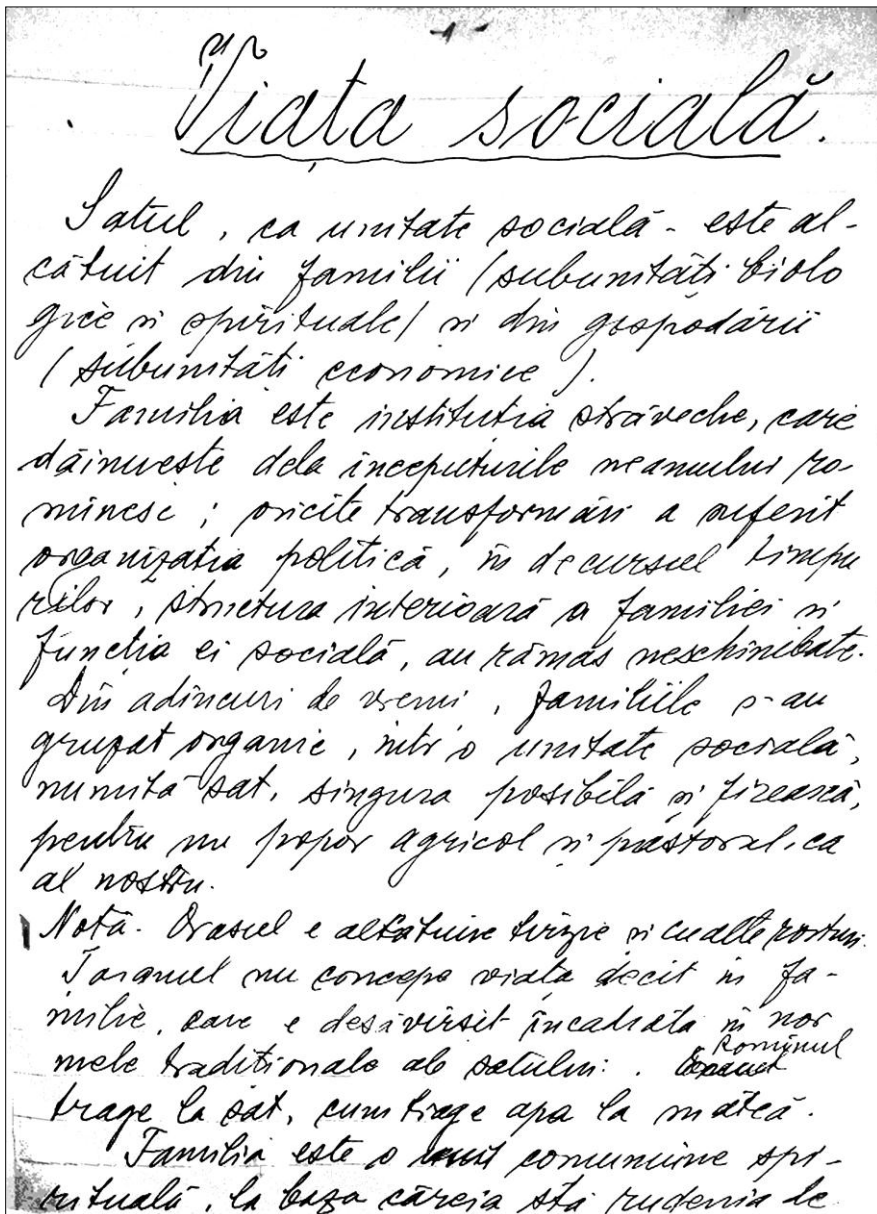 - 1 -
Viața socială.
Satul, ca unitate socială - este al-
cătuit din familii (subunități biolo
gice si spirituale) si din gospodării
(subunități economice).
Familia este institutia străveche, care
dăinueste dela inceputurile neamului ro-
minesc; oricite transformări a suferit
organizatia politică, in decursul timpu
rilor, structura interioară a familiei si
functia ei socială, au rămas neschimbate.
Din adincuri de vremi, familiile s-au
grupat organic, intr'o unitate socială,
numită sat, singura posibilă si firească,
pentru un popor agricol si păstoral, ca
al nostru.
Notă. Orasul e alcătuire tirzie si cu alte rosturi.
Taranul nu concepe viata decit in fa-
milie, care e desăvirsit incadrata in nor
mele traditionale ale satului. Rominul
trage la sat, cum trage apa la matcă.
Familia este o comuniune spi-
rituală, la baza căreia stă rudenia de